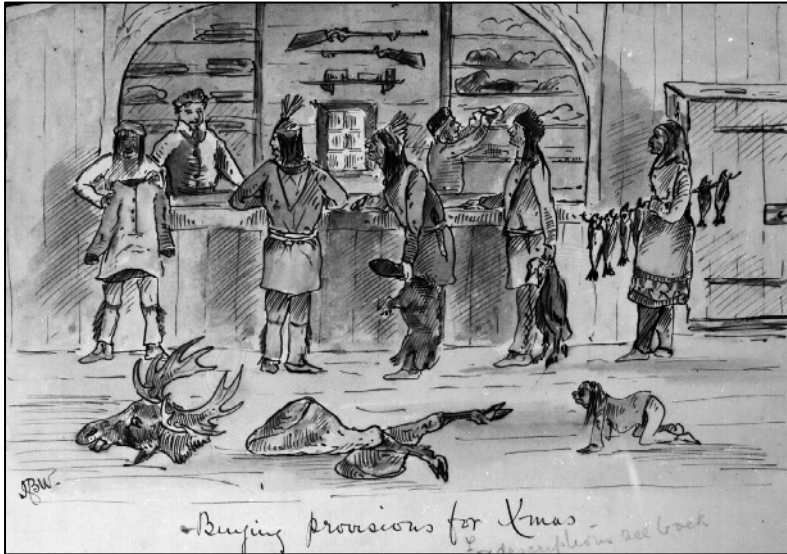 JBW.
Buying provisions for Xmas
For descriptions see back